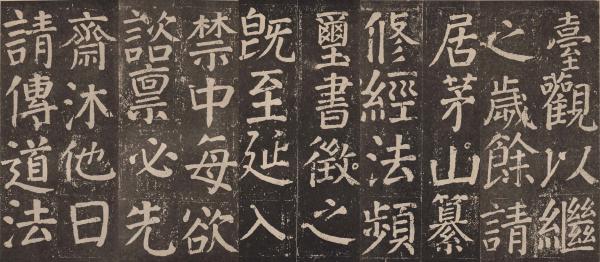 臺觀以繼
之歲餘請
居茅山纂
修經法頻
璽書徵之
旣至延入
禁中每欲
諮稟必先
齋沐他日
請傳道法